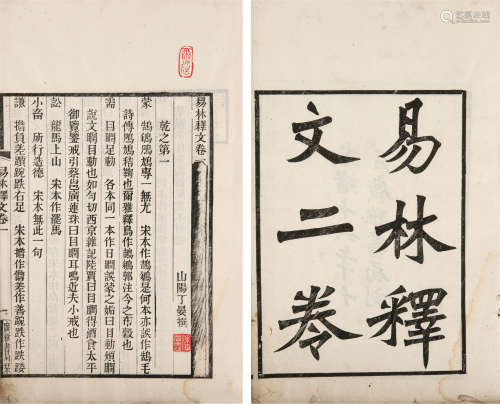 易林釋
文二卷
易林釋文卷一
山陽丁晏撰
乾之第一
蒙 鳲鳩專一無尤 宋本作 是何本亦誤作鵠毛
詩傳鳲鳩秸鞠也爾雅釋鳥作 郭注今之布穀也
需 目瞤足動 各本同一本作日瞤誤蒙之 曰目動 瞤
說文瞤目動也如勻切西京雜記陸賈曰目瞤得酒食太平
御覽鑒戒引蔡邕廣連珠曰目瞤耳鳴近夫小戒也
訟 龍馬上山 宋本作罷馬
小畜 行造德 宋本無此一句
謙 擔負差躓踠跌右足 宋本擔作儋差作善踠跌作跌踒
易林釋文卷一
一
廣雅書局栞